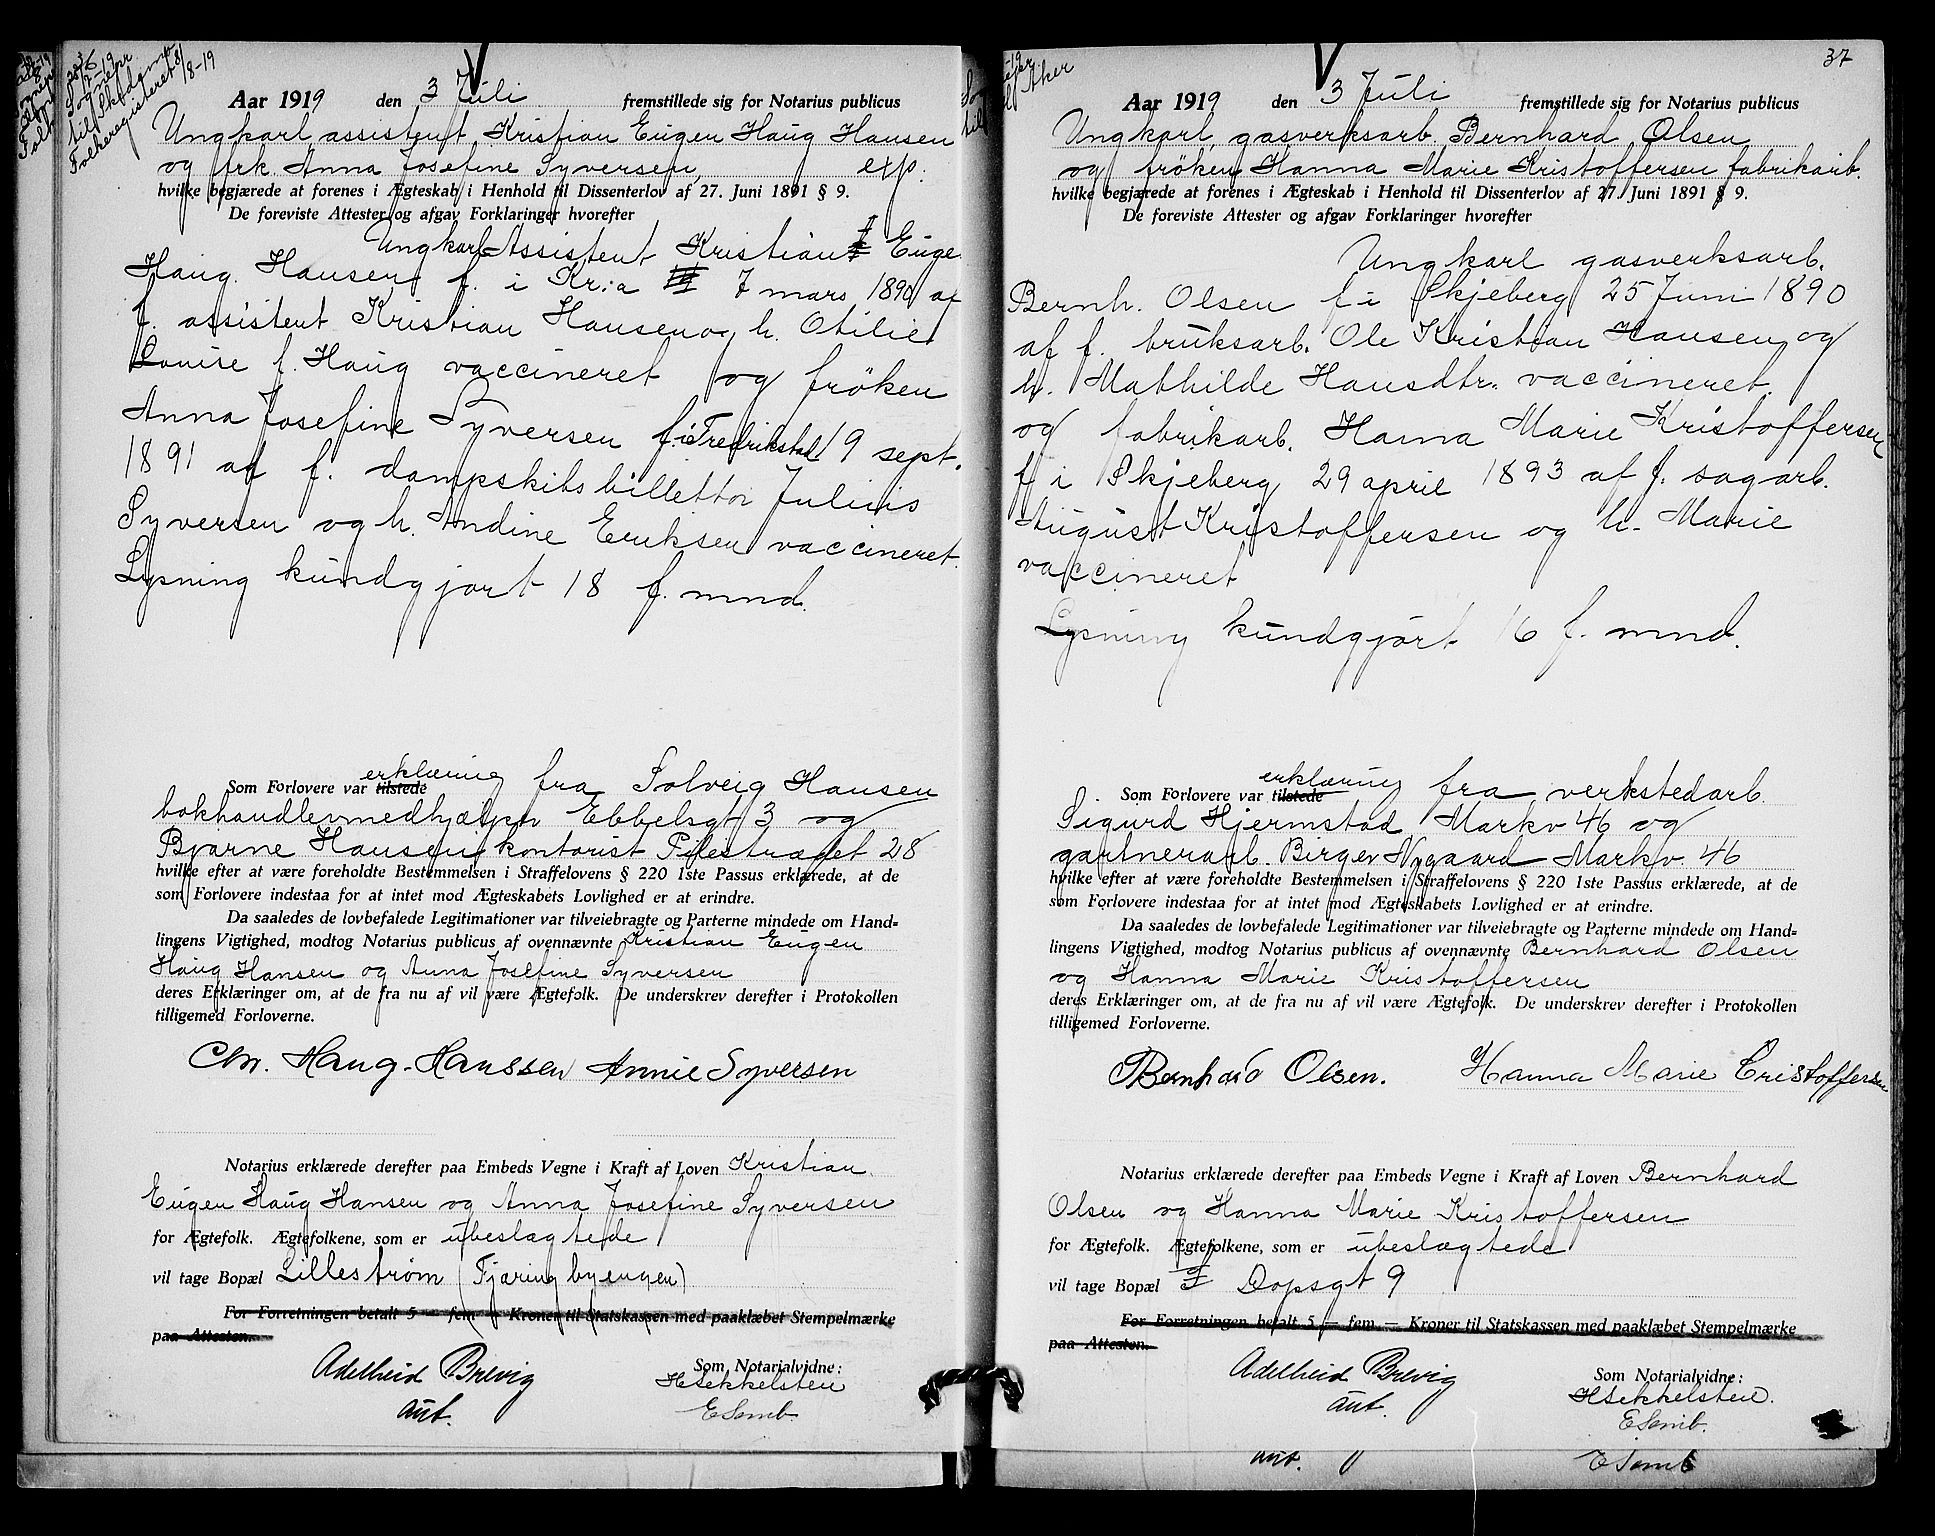 Aar 1919 den 3 Juli fremstillede sig for Notarius publicus
Ungkarl assistent Kristian Eugen Haug Hansen
og frk. Anna Josefine Syversen, exp.
hvilke begjærede at forenes i Ægteskab i Henhold til Dissenterlov af 27. Juni 1891 § 9.
De foreviste Attester og afgav Forklaringer hvorefter
Ungkarl Assistent Kristian Euge
Haug Hansen f. i Kr:a 7 mars 1890 af
f. assistent Kristian Hansen og h. Otilie
Louise f. Haug vaccineret og fröken
Anna Josefine Syversen f. i Fredrikstad 19 sept.
1891 af f. dampskibsbillettör Julius
Syversen og h. Andine Eriksen vaccineret.
Lysning kundgjort 18 f. mnd.
Som Forlovere var tilstede erklæring fra Solveig Hansen
bokhandlermedhjælper Ebbelsgt 3 og
Bjarne Hansen kontorist Pilestrædet 28
hvilke efter at være foreholdte Bestemmelsen i Straffelovens § 220 1ste Passus erklærede, at de
som Forlovere indestaa for at intet mod Ægteskabets Lovlighed er at erindre.
Da saaledes de lovbefalede Legitimationer var tilveiebragte og Parterne mindede om Hand-
lingens Vigtighed, modtog Notarius publicus af ovennævnte Kristian Eugen
Haug Hansen og Anna Josefine Syversen
deres Erklæringer om, at de fra nu af vil være Ægtefolk. De underskrev derefter i Protokollen
tilligemed Forloverne.
Chr. Haug-Hanssen Annie Syversen
Notarius erklærede derefter paa Embeds Vegne i Kraft af Loven Kristian
Eugen Haug Hansen og Anna Josefine Syversen
for Ægtefolk. Ægtefolkene, som er ubeslægtede
vil tage Bopæl Lillestrøm (Fjæringbyengen)
For Forretningen betalt 5 — fem — Kroner til Statskassen med paaklæbet Stempelmærke
paa Attesten.
Adelheid Brevig
aut.
Som Notarialvidne:
H Sekkelsten
E Semb.
37
Aker
Aar 1919 den 3 Juli fremstillede sig for Notarius publicus
Ungkarl, gasverksarb. Bernhard Olsen
og fröken Hanna Marie Kristoffersen fabrikarb.
hvilke begjærede at forenes i Ægteskab i Henhold til Dissenterlov af 27. Juni 1891 § 9.
De foreviste Attester og afgav Forklaringer hvorefter
Ungkarl gasverksarb.
Bernh. Olsen f i Skjeberg 25 Juni 1890
af f. bruksarb. Ole Kristian Hansen og
h. Mathilde Hansdtr. vaccineret.
og fabrikarb. Hanna Marie Kristoffersen
f i Skjeberg 29 april 1893 af f. sagarb.
August Kristoffersen og h. Marie
vaccineret
Lysning kundgjört 16 f. mnd.
Som Forlovere var tilstede erklæring fra verkstedarb
Sigurd Hjermstad Markv 46 og
gartnerarb. Birger Nygaard Markv. 46
hvilke efter at være foreholdte Bestemmelsen i Straffelovens § 220 1ste Passus erklærede, at de
som Forlovere indestaa for at intet mod Ægteskabets Lovlighed er at erindre.
Da saaledes de lovbefalede Legitimationer var tilveiebragte og Parterne mindede om Hand-
lingens Vigtighed, modtog Notarius publicus af ovennævnte Bernhard Olsen
og Hanna Marie Kristoffersen
deres Erklæringer om, at de fra nu af vil være Ægtefolk. De underskrev derefter i Protokollen
tilligemed Forloverne.
Bernhard Olsen. Hanna Marie Cristoffersen
Notarius erklærede derefter paa Embeds Vegne i Kraft af Loven Bernhard
Olsen og Hanna Marie Kristoffersen
for Ægtefolk. Ægtefolkene, som er ubeslægtede
vil tage Bopæl Dopsgt 9
For Forretningen betalt 5 — fem — Kroner til Statskassen med paaklæbet Stempelmærke
paa Attesten.
Adelheid Brevig
aut.
Som Notarialvidne:
H Sekkelsten.
E Semb.
aut.
E Semb